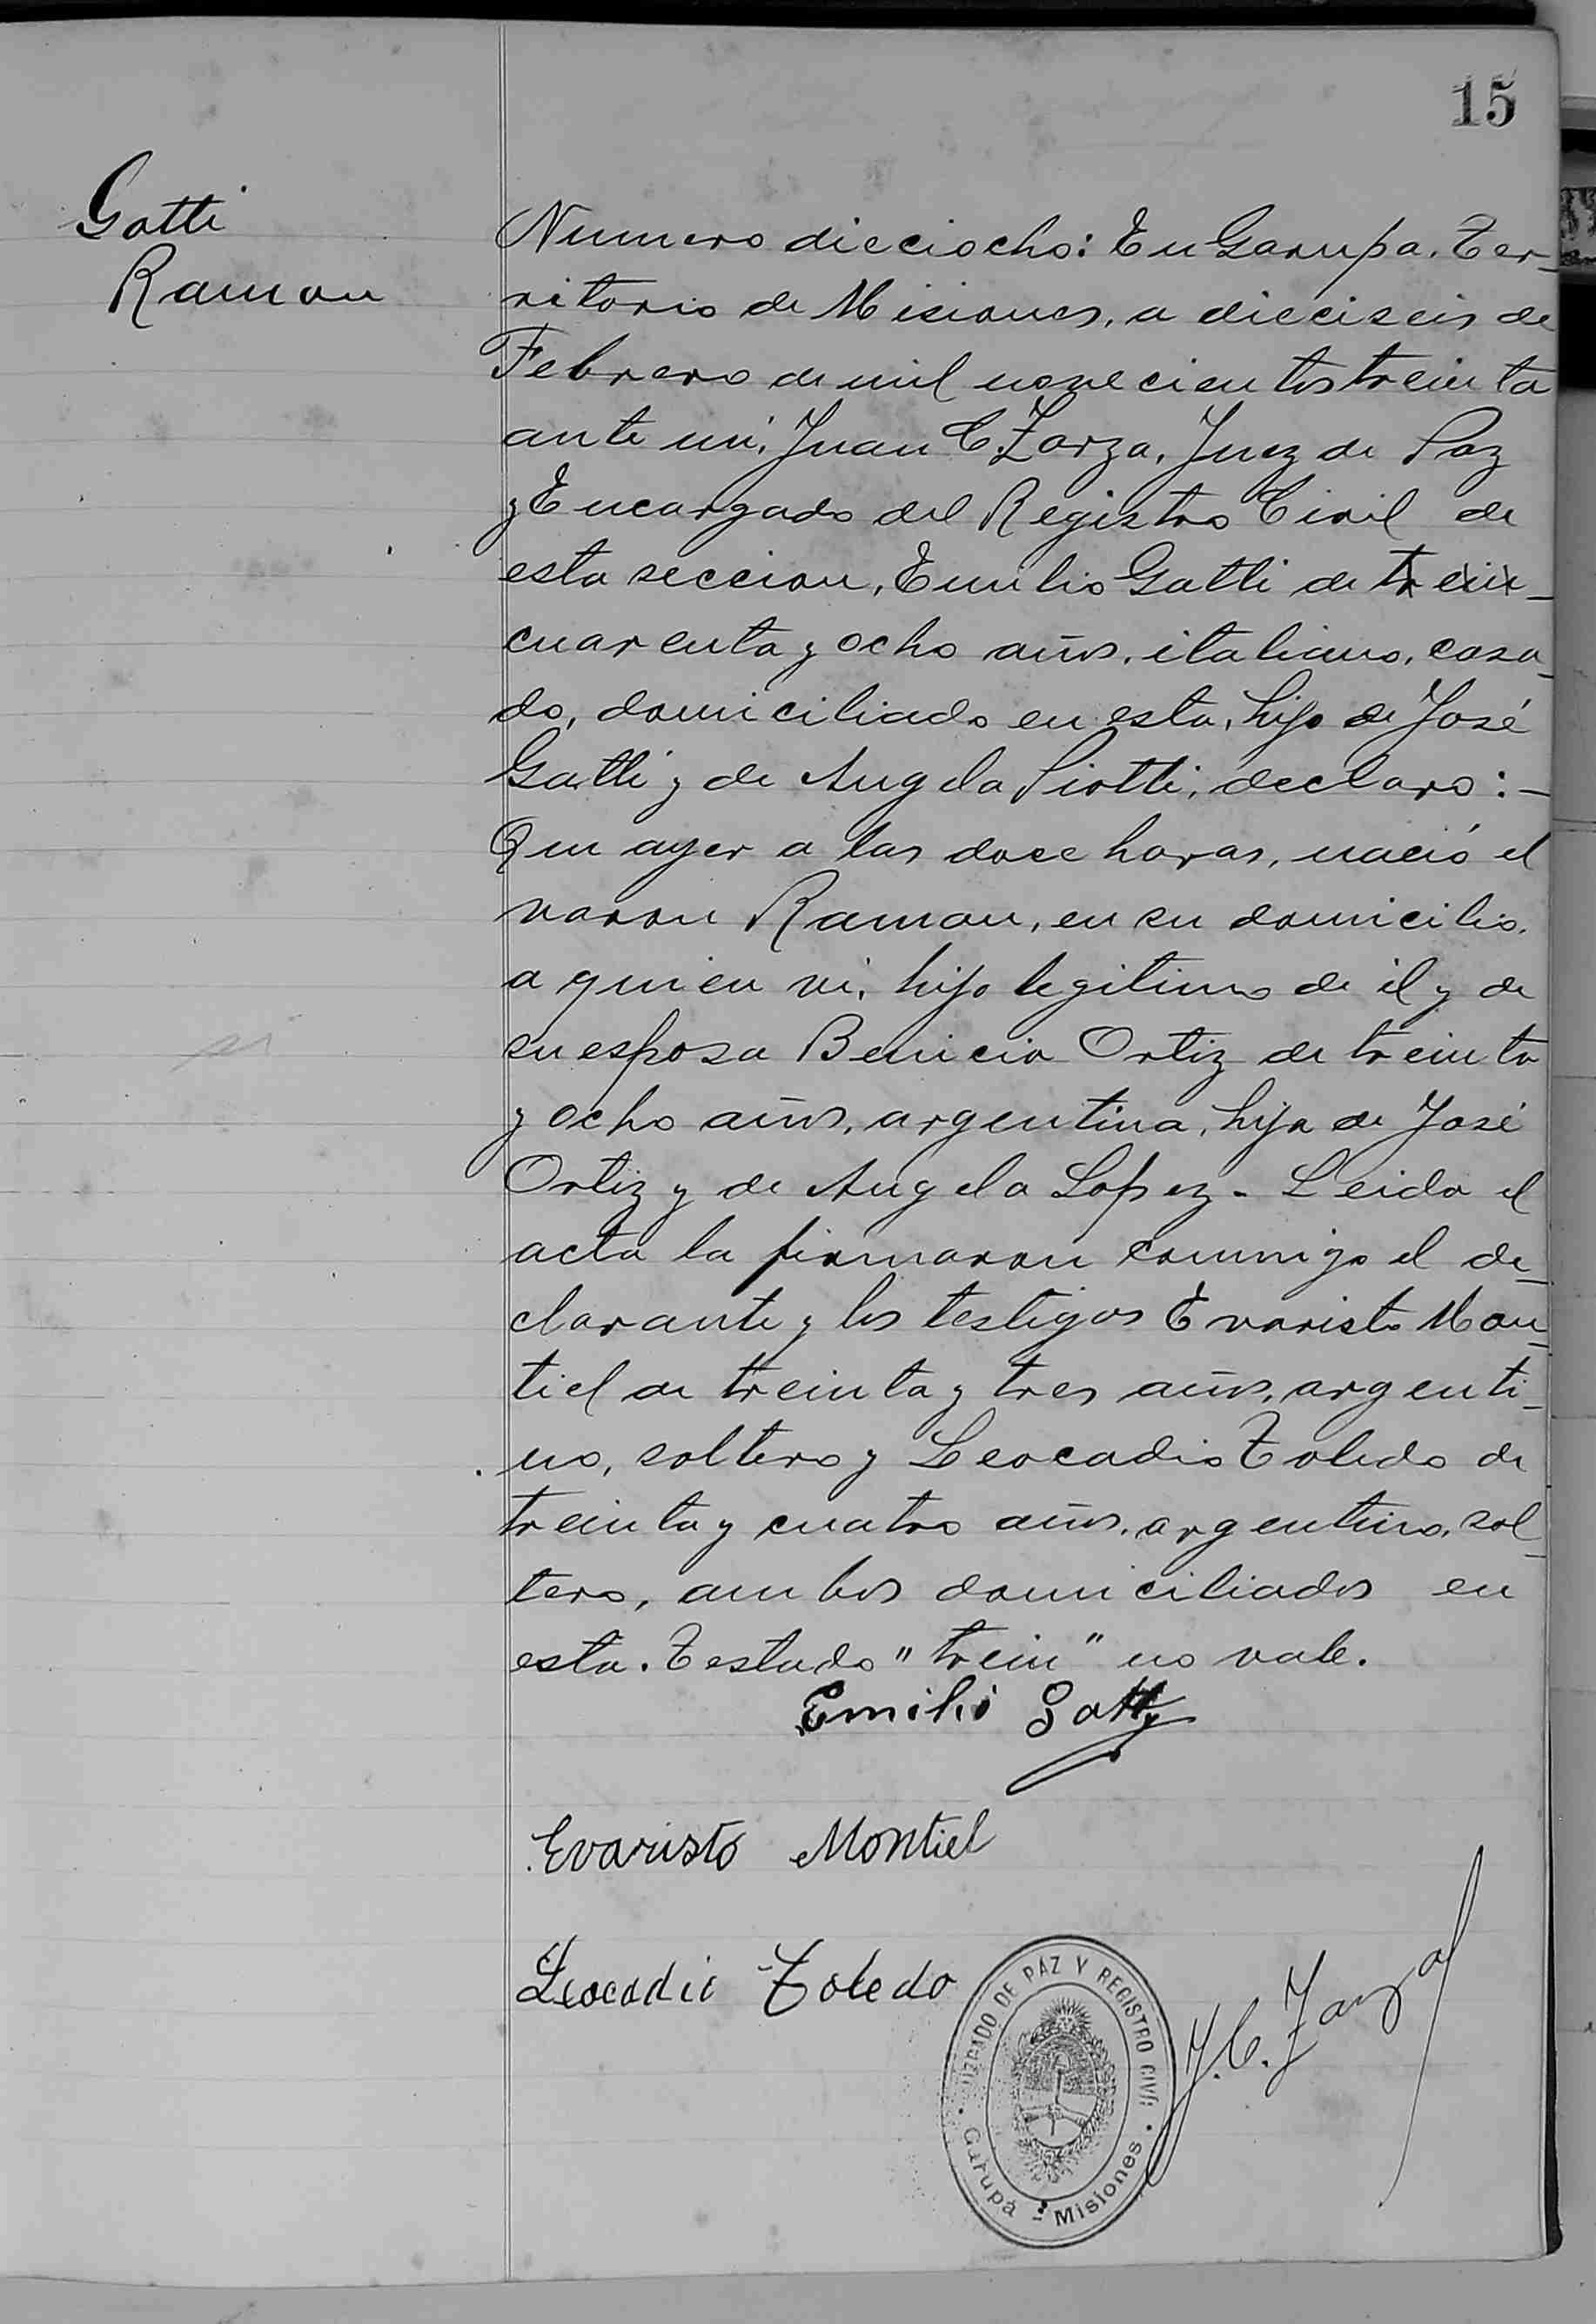 15
Gatti
Ramon
Numero dieciocho: En Garupa, Ter-
ritorio de Misiones, a dieciseis de
Febrero de mil novecientos treinta
ante mi, Juan C. Zarza, Juez de Paz
y Encargado del Registro Civil de
esta seccion, Emilio Gatti de trein-
cuarenta y ocho años, italiano, casa-
do, domiciliado en esta, hijo de José
Gatti y de Angela Piotti, declaro:-
Que ayer a las doce horas, nació el
varon Ramon, en su domicilio,
a quien vi, hijo legitimo de él y de
su esposa Benicia Ortiz de treinta
y ocho años, argentina, hija de José
Ortiz y de Angela Lopez.- Leida el
acta la firmaron conmigo el de-
clarante y los testigos Evaristo Mon-
tiel de treinta y tres años, argenti-
no, soltero y Leocadio Toledo de
treinta y cuatro años, argentino, sol-
tero, ambos domiciliados en
esta. Testado "trein" no vale.
Emilio Gatty
Evaristo Montiel
Leocadio Toledo
J. C. Zarza
JUZGADO DE PAZ Y REGISTRO CIVIL
Garupá - Misiones